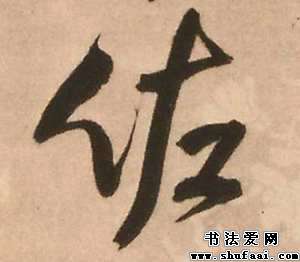 佐
书法爱网
www.shufaai.com